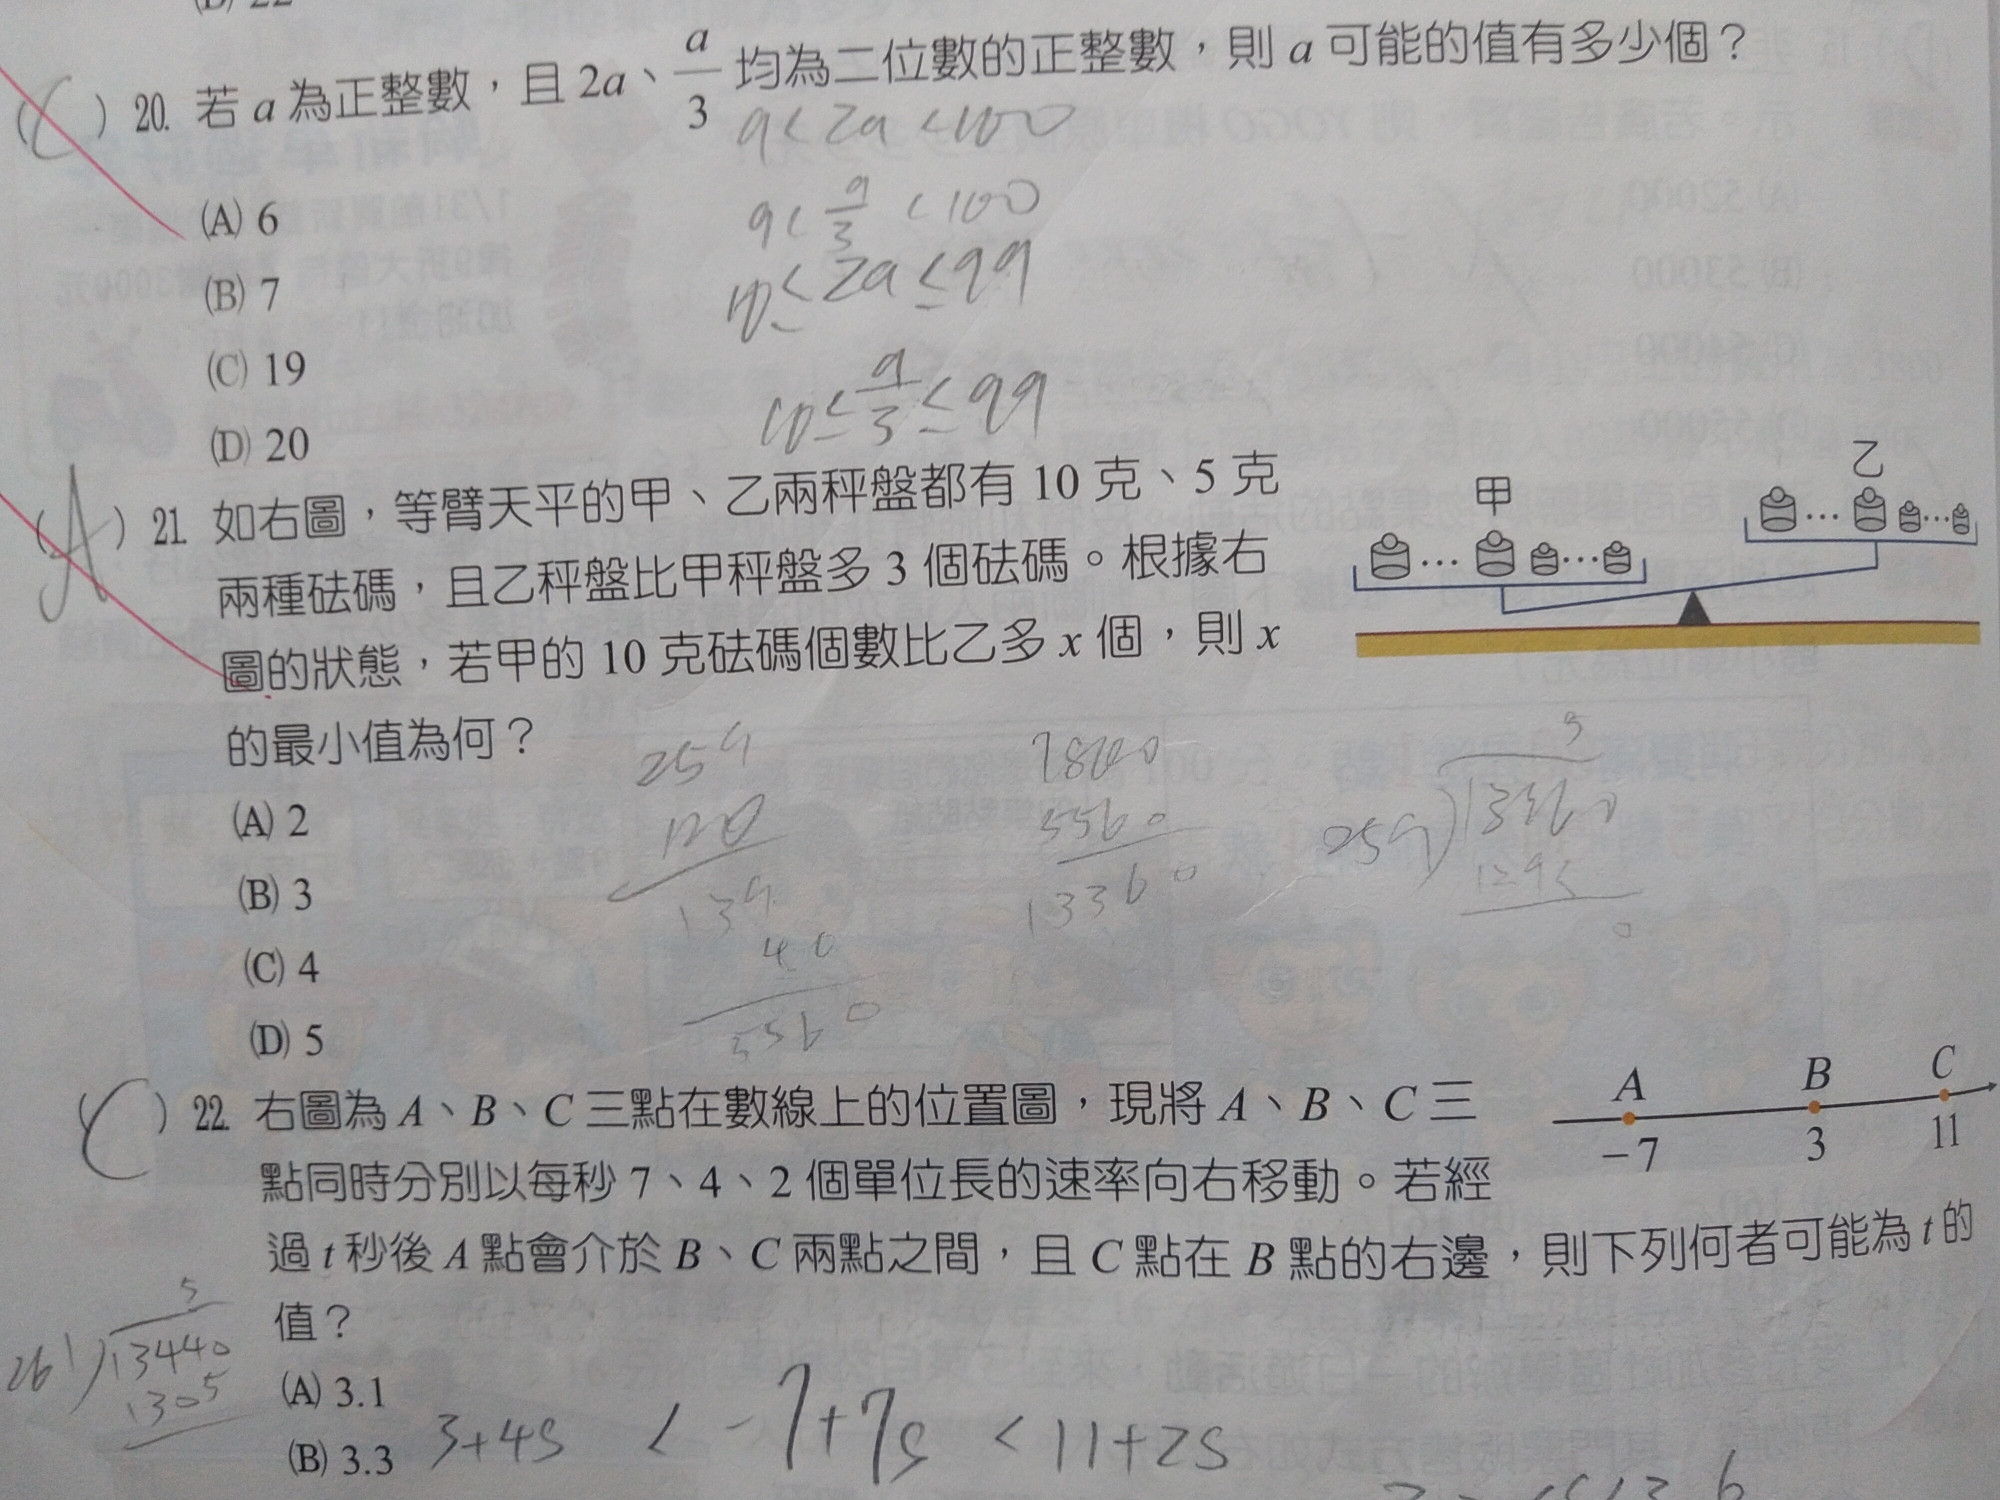 (C) 20. 若 a 為正整數，且 2a、a/3 均為二位數的正整數，則 a 可能的值有多少個？
9<2a<100
(A) 6
9<a/3<100
(B) 7
10≤2a≤99
(C) 19
10≤a/3≤99
(D) 20
(A) 21. 如右圖，等臂天平的甲、乙兩秤盤都有 10 克、5 克
兩種砝碼，且乙秤盤比甲秤盤多 3 個砝碼。根據右
圖的狀態，若甲的 10 克砝碼個數比乙多 x 個，則 x
的最小值為何？
甲
乙
(A) 2
(B) 3
(C) 4
(D) 5
259
120
139
40
5560
7800
5560
13360
5
259)13360
1295
0
(C) 22. 右圖為 A、B、C 三點在數線上的位置圖，現將 A、B、C 三
點同時分別以每秒 7、4、2 個單位長的速率向右移動。若經
過 t 秒後 A 點會介於 B、C 兩點之間，且 C 點在 B 點的右邊，則下列何者可能為 t 的
值？
A B C
−7 3 11
(A) 3.1
(B) 3.3
5
261)13440
1305
3+4s < -7+7s < 11+2s